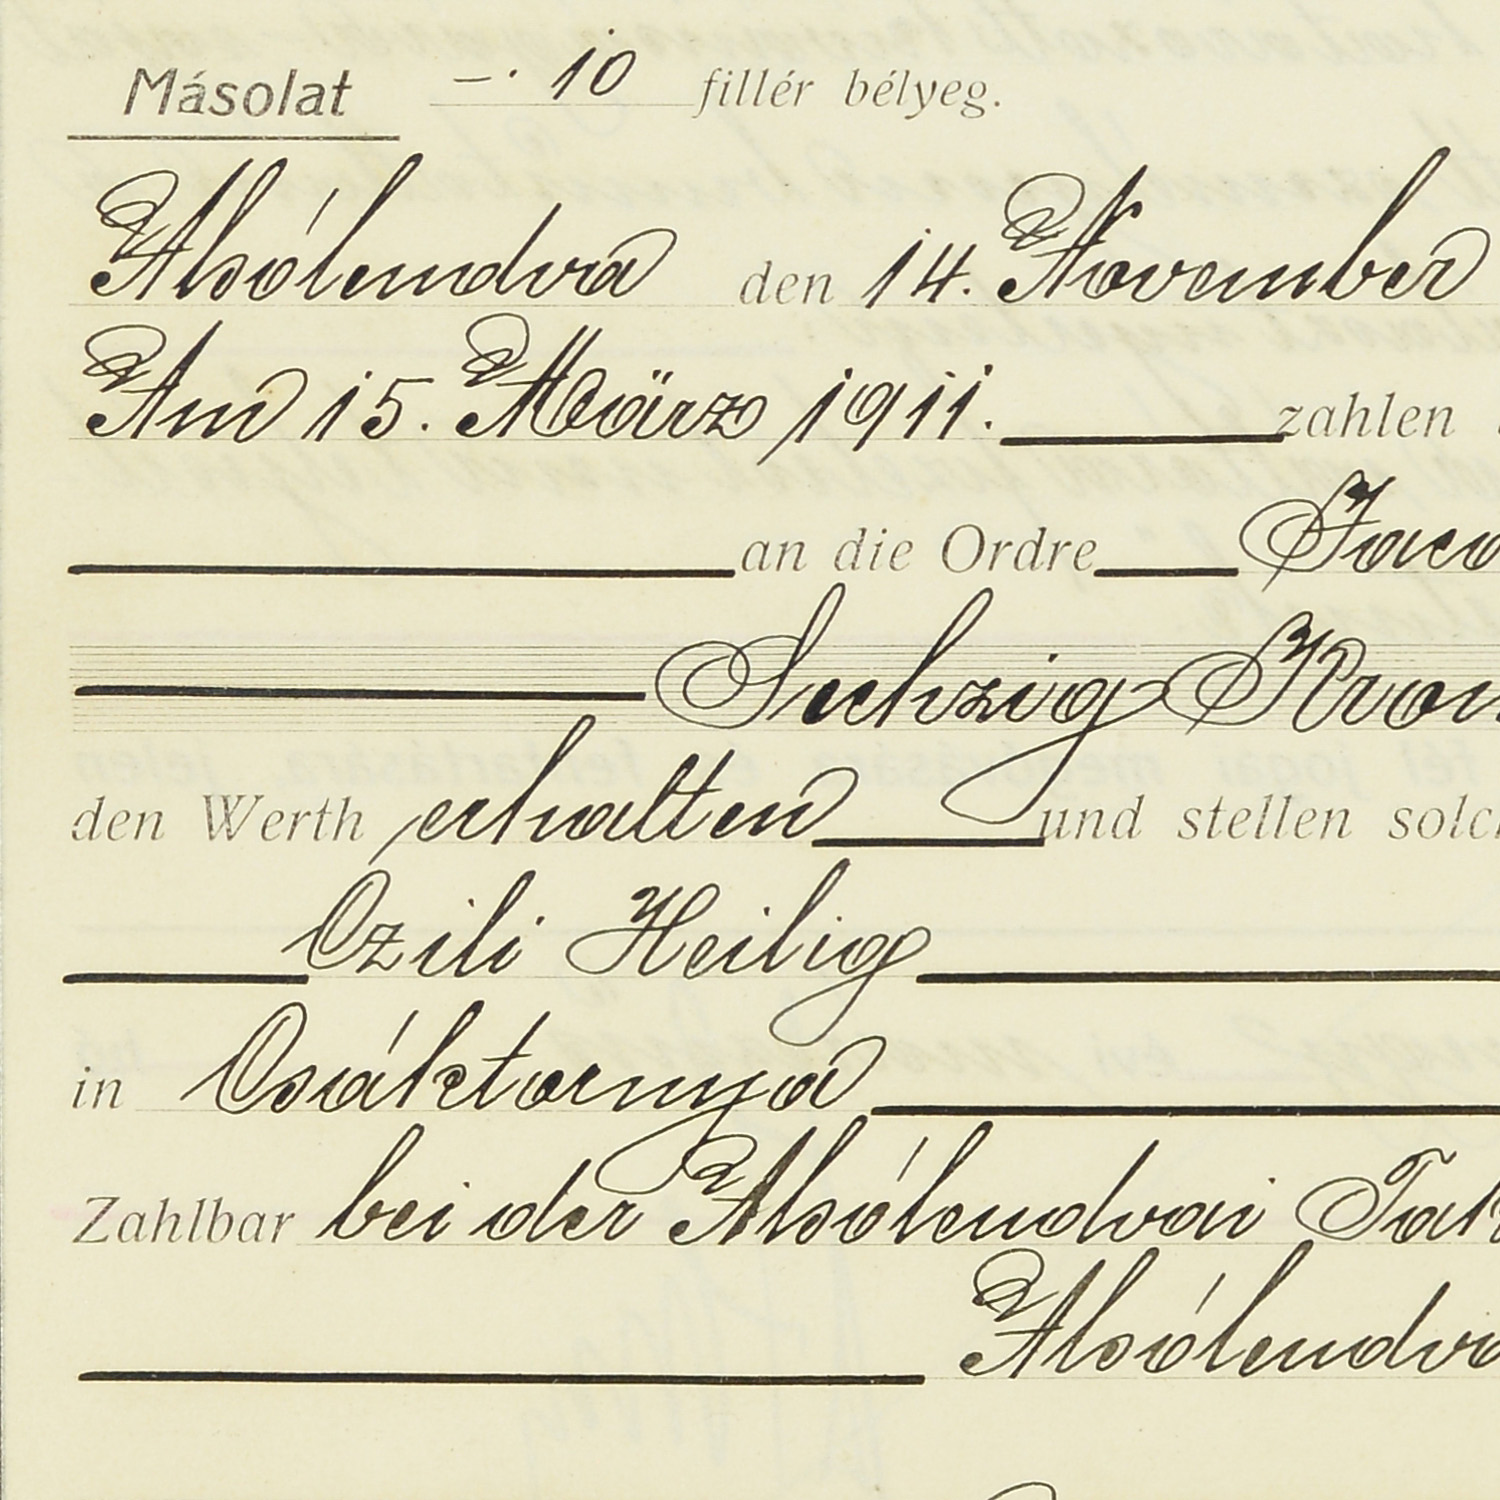 Másolat —. 10 fillér bélyeg.
Alsólendva den 14. November
Am 15. März 1911. zahlen
an die Ordre
Sechzig Kron
den Werth erhalten und stellen solch
Czili Heilig
in Csáktornya
Zahlbar bei der Alsólendvai Tak
Alsólendva